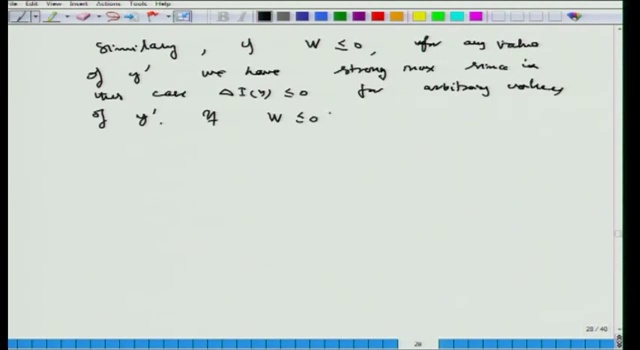 File View Insert Actions Tools Help
Similary, if W ≤ 0, for any value
of y' we have strong max since in
this case ΔI(y) ≤ 0 for arbitrary values
of y'. If W ≤ 0
28 / 40
28